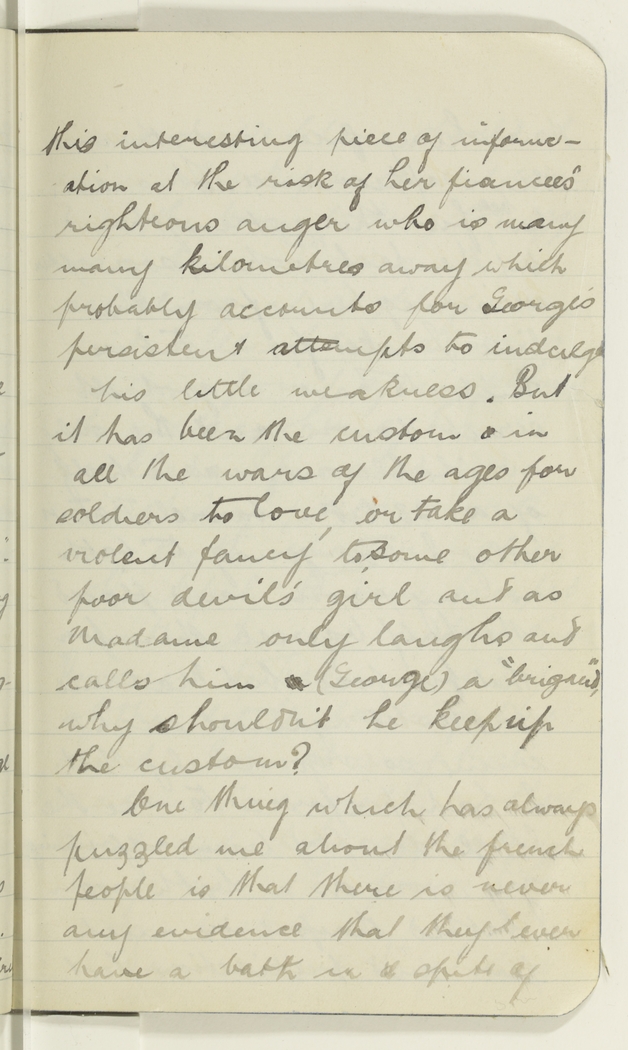 this interesting piece of inform-
ation at the risk of her fiancee's
righteous anger who is many
many kilometres away which
probably accounts for George's
persistent attempts to indulge
his little weakness. But
it has been the custom in
all the wars of the ages for
soldiers to love, or take a
violent fancy to, some other
poor devil's girl and as
Madame only laughs and
calls him (George) a "brigand",
why should'nt he keep up
the custom?
One thing which has always
puzzled me about the french
people is that there is never
any evidence that they ever
have a bath in spite of